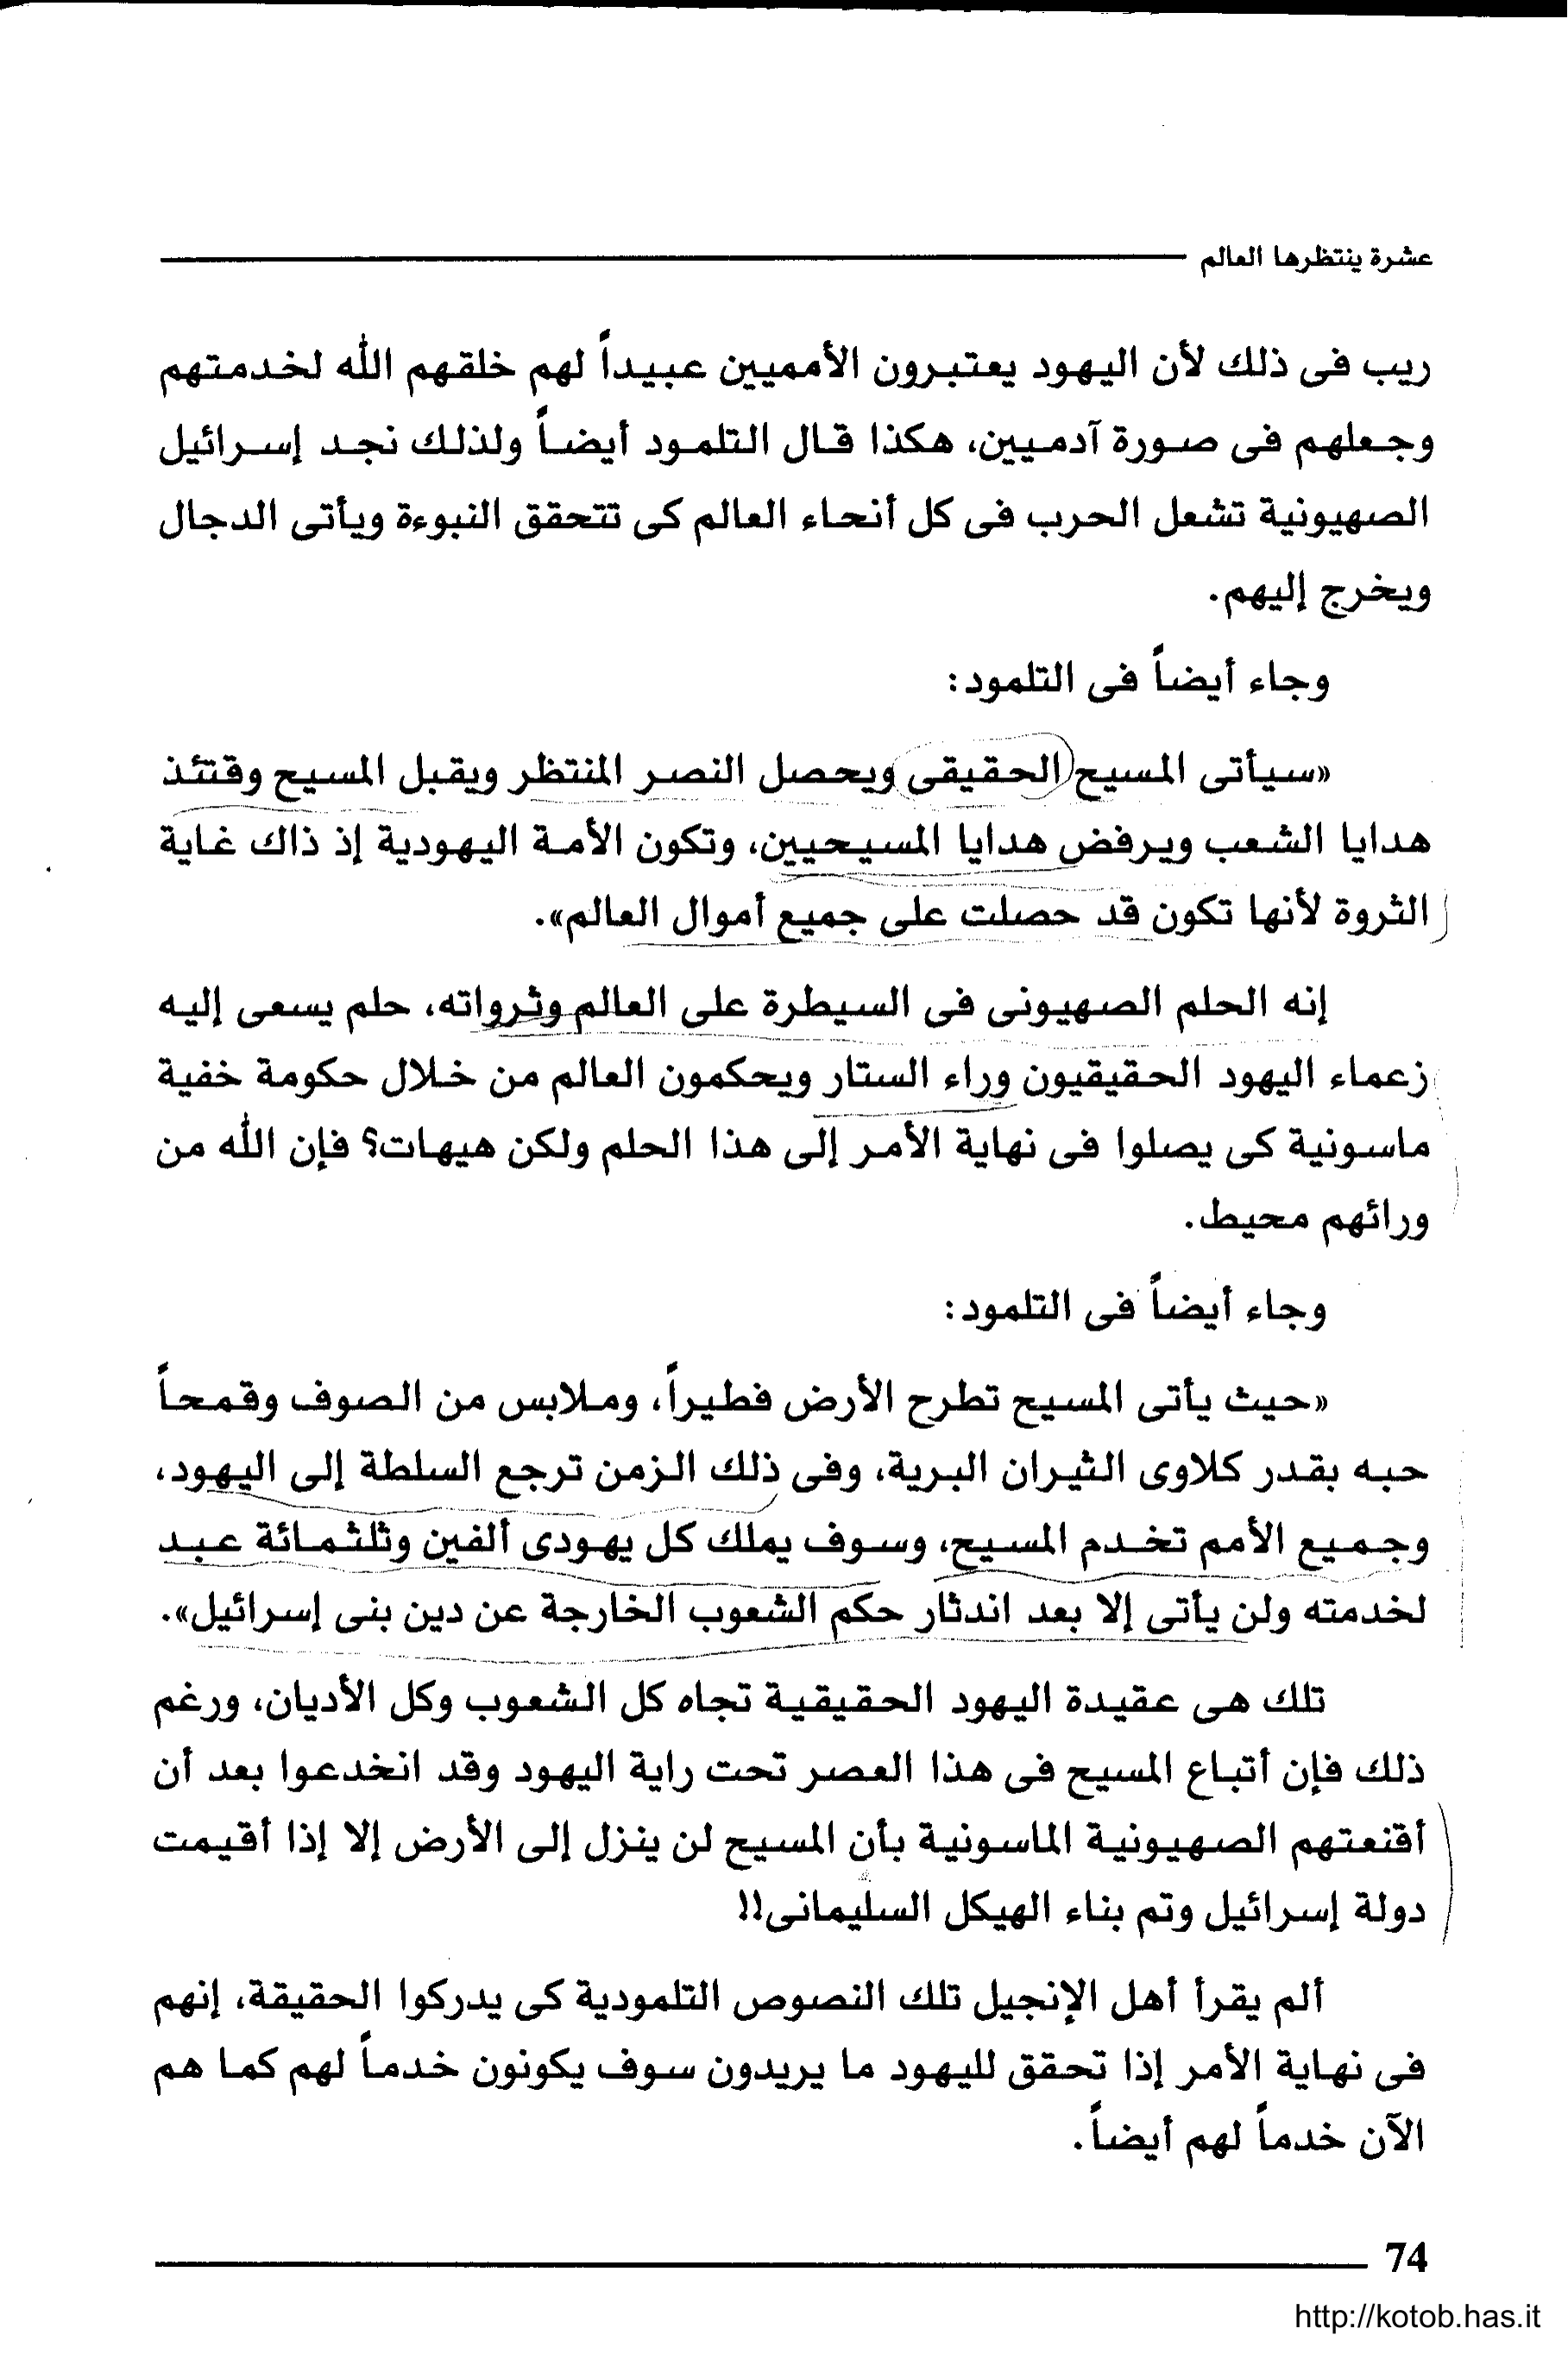 عشرة ينتظرها العالم
ريب فى ذلك لأن اليهود يعتبرون الأمميين عبيداً لهم خلقهم الله لخدمتهم
وجعلهم فى صورة آدميين، هكذا قال التلمود أيضاً ولذلك نجد إسرائيل
الصهيونية تشعل الحرب فى كل أنحاء العالم كى تتحقق النبوءة ويأتى الدجال
ويخرج إليهم.
وجاء أيضاً فى التلمود:
«سيأتى المسيح الحقيقى ويحصل النصر المنتظر ويقبل المسيح وقتئذ
هدايا الشعب ويرفض هدايا المسيحيين، وتكون الأمة اليهودية إذ ذاك غاية
الثروة لأنها تكون قد حصلت على جميع أموال العالم».
إنه الحلم الصهيونى فى السيطرة على العالم وثرواته، حلم يسعى إليه
زعماء اليهود الحقيقيون وراء الستار ويحكمون العالم من خلال حكومة خفية
ماسونية كى يصلوا فى نهاية الأمر إلى هذا الحلم ولكن هيهات؟ فإن الله من
ورائهم محيط.
وجاء أيضاً فى التلمود:
«حيث يأتى المسيح تطرح الأرض فطيراً، وملابس من الصوف وقمحاً
حبه بقدر كلاوى الثيران البرية، وفى ذلك الزمن ترجع السلطة إلى اليهود،
وجميع الأمم تخدم المسيح، وسوف يملك كل يهودى ألفين وثلثمائة عبد
لخدمته ولن يأتى إلا بعد اندثار حكم الشعوب الخارجة عن دين بنى إسرائيل».
تلك هى عقيدة اليهود الحقيقية تجاه كل الشعوب وكل الأديان، ورغم
ذلك فإن أتباع المسيح فى هذا العصر تحت راية اليهود وقد انخدعوا بعد أن
أقنعتهم الصهيونية الماسونية بأن المسيح لن ينزل إلى الأرض إلا إذا أقيمت
دولة إسرائيل وتم بناء الهيكل السليمانى!!
ألم يقرأ أهل الإنجيل تلك النصوص التلمودية كى يدركوا الحقيقة، إنهم
فى نهاية الأمر إذا تحقق لليهود ما يريدون سوف يكونون خدماً لهم كما هم
الآن خدماً لهم أيضاً.
74
http://kotob.has.it